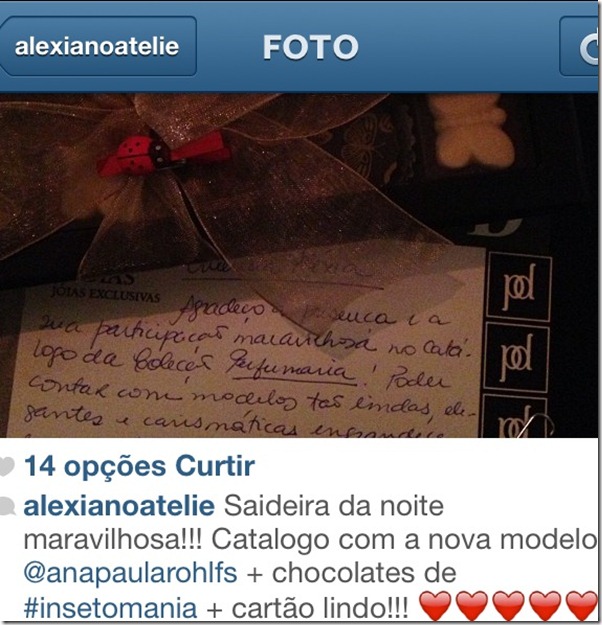 alexianoatelie
FOTO
JOIAS EXCLUSIVAS
pd
Agradeço a presença e a
sua participação maravilhosa no Catá-
logo da Coleção Perfumaria! Poder
pd
contar com modelos tão lindas, ele-
gantes e carismáticas engrandece
pd
14 opções Curtir
alexianoatelie Saideira da noite
maravilhosa!!! Catalogo com a nova modelo
@anapaularohlfs + chocolates de
#insetomania + cartão lindo!!! ❤️❤️❤️❤️❤️